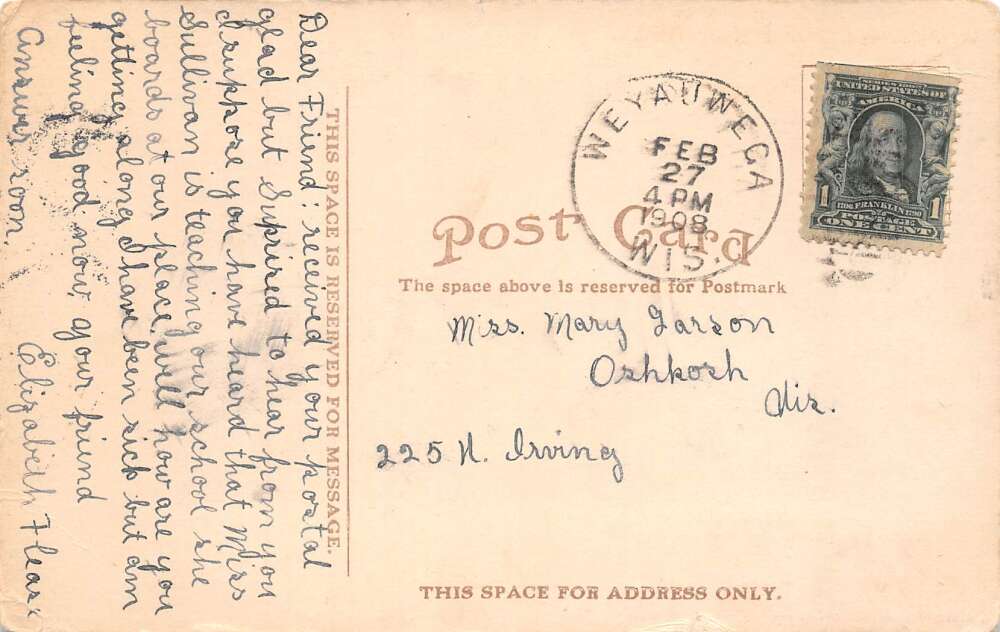 Dear Friend: received your postal
glad but Suprised to hear from you
I suppose you have heard that Miss
Sullivan is teaching our school she
boards at our place, well how are you
getting along, I have been sick but am
feeling good now, your friend
Answer soon. Elizabeth
THIS SPACE IS RESERVED FOR MESSAGE.
WEYAUWEGA
FEB
27
4 PM
1908
WIS.
SERIES 1902
UNITED STATES OF
AMERICA
1706 FRANKLIN 1790
POSTAGE
1 ONE CENT 1
Post Card
The space above is reserved for Postmark
Miss. Mary Larson
Oshkosh
Wis.
225 N. Irving
THIS SPACE FOR ADDRESS ONLY.